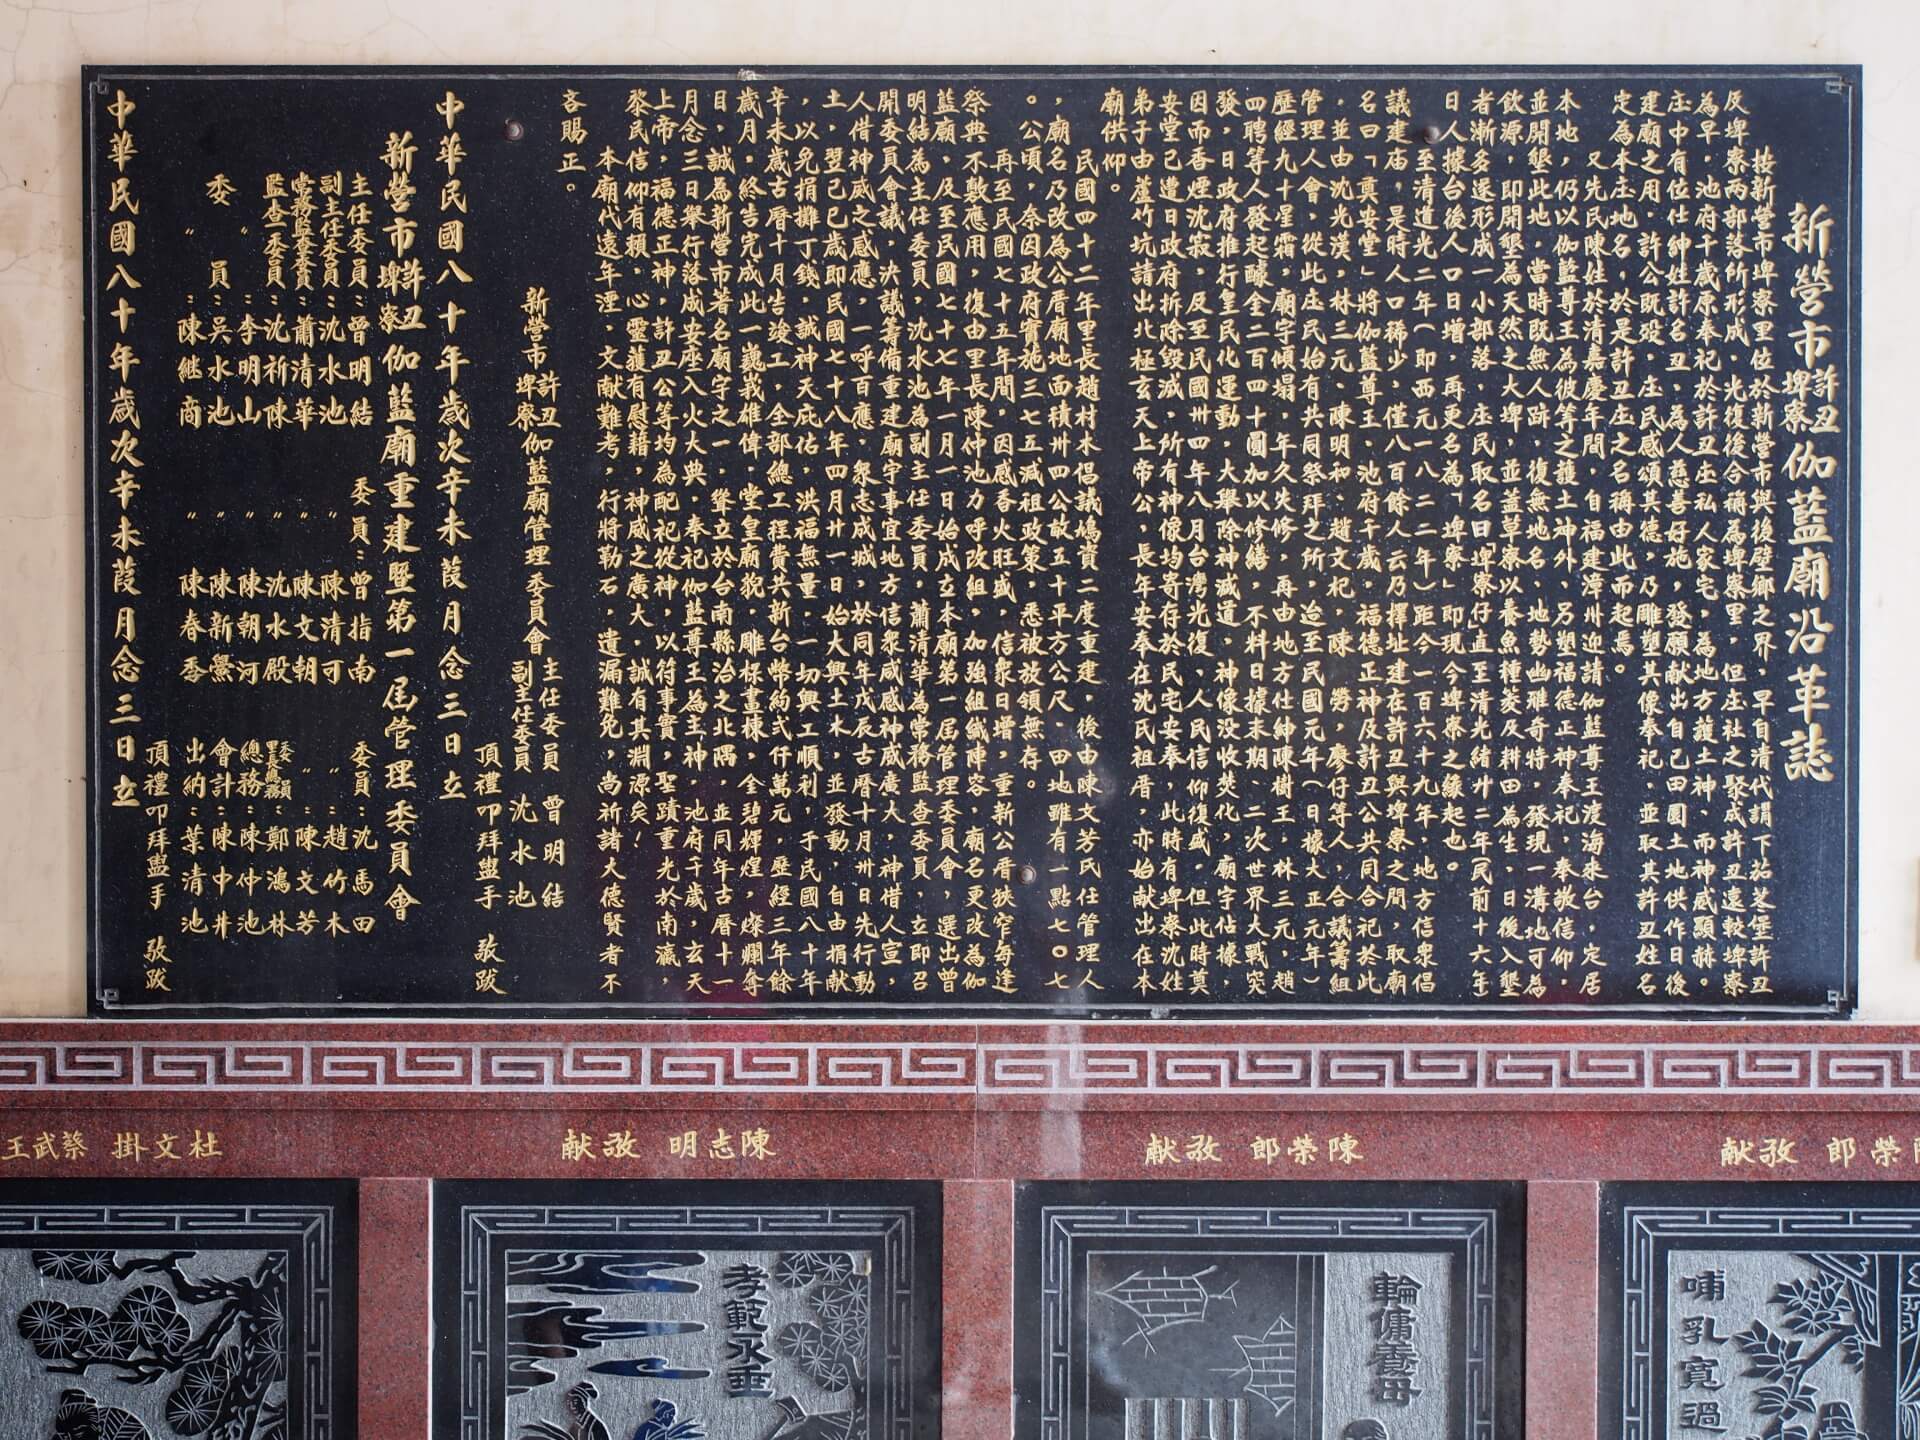 新營市許丑埤寮伽藍廟沿革誌
按新營市埤寮里位於新營市與後壁鄉之界，早自清代謂下茄苳堡許丑
反埤寮兩部落所形成，光復後合稱為埤寮里，但庄社之聚成許丑遠較埤寮
為早，池府千歲原奉祀於許丑庄私人家宅，為地方護土神、而神威顯赫。
庄中有位仕紳姓許名丑、為人慈善好施，發願献出自己田園土地供作日後
建廟之用。許公既殁、庄民感頌其德，乃雕塑其像奉祀，並取其許丑姓名
定為本庄地名，於是許丑庄之名稱由此而起焉。
又先民陳姓於清嘉慶年間，自福建漳州迎請伽藍尊王渡海來台，定居
本地，仍以伽藍尊王為彼等之護土神外、另塑福德正神奉祀，奉敬信仰，
並開墾此地，當時既無人跡，復無地名、地勢幽雅奇特，發現一溝地可為
飲源，即開墾為天然之大埤，並蓋草寮以養魚種菱及耕田為生，日後入墾
者漸多遂形成一小部落、庄民取名曰「埤寮仔」直至清光緒廿二年（民前十六年）
日人據台後人口日增，再更名為「埤寮」即現今埤寮之緣起也。
至清道光二年（即西元一八二二年）距今一百六十九年，地方信眾倡
議建庙，是時人口稀少，僅八百餘人云乃擇址建在許丑與埤寮之間，取廟
名曰「真安堂」將伽藍尊王、池府千歲，福德正神及許丑公共同合祀於此
，並由沈光漢，林三元、陳明和、趙文祀，陳勞，廖仔等人，合議籌組
管理人會，從此庄民始有共同祭拜之所，迨至民國元年（日據大正元年）
歷經九十星霜，廟宇傾塌，年久失修，再由地方仕紳陳樹王，林三元，趙
四聘等人發起醵金二百四十圓加以修繕，不料日據末期、二次世界大戰突
發，日政府推行皇民化運動，大舉除神滅道，神像没收焚化，廟宇佔據，
因而香煙沈寂，及至民國卅四年八月台灣光復、人民信仰復盛，但此時真
安堂已遭日政府拆除毀滅，所有神像均寄存於民宅安奉，此時有埤寮沈姓
弟子由蘆竹坑請出北極玄天上帝公，長年安奉在沈氏祖厝，亦始献出在本
廟供仰。
民國四十二年里長趙村木倡議鳩資二度重建，後由陳文芳氏任管理人
，廟名乃改為公厝廟地面積卅四公畝五十平方公尺、田地雖有一點七〇七
。公頃，奈因政府實施三七五減祖政策，悉被放領無存。
再至民國七十五年間，因感香火旺盛，信眾日增，重新公厝狹窄每逢
祭典不敷應用，復由里長陳仲池力呼改組，加強組織陣容，廟名更改為伽
藍廟，及至民國七十七年一月一日始成立本廟第一屆管理委員會，選出曾
明結為主任委員，沈水池為副主任委員，蕭清華為常務監查委員，立即召
開委員會議，決議籌備重建廟宇事宜地方信眾咸感神威廣大，神借人宣，
人借神威之感應，一呼百應，衆志成城，於同年戊辰古曆十月卅日先行動
土，翌己巳歲即民國七十八年四月廿一日始大興土木，並發動，自由捐献
，以免捐攤丁錢，誠神天庇佑，洪福無量，一切興工順利，于民國八十年
辛未歲古曆十月告竣工，全部總工程費共新台幣約弍仟萬元，歷經三年餘
歲月，終告完成此一巍峩雄偉，堂皇廟貌，雕樑畫棟，金碧輝煌，燦爛奪
目，誠為新營市著名廟宇之一，聳立於台南縣治之北隅，並同年古曆十一
月念三日舉行落成安座入火大典，奉祀伽藍尊王為主神，池府千歲，玄天
上帝，福德正神，許丑公等均為配祀從神，以符事實，聖蹟重光於南瀛，
黎民信仰有賴，心靈護有慰藉，神威之廣大，誠有其淵源矣！
本廟代遠年湮，文献難考，行將勒石，遺漏難免，尚祈諸大德賢者不
吝賜正。
新營市許丑埤寮伽藍廟管理委員會 主任委員 曾明結
副主任委員 沈水池
頂禮叩拜盥手 敬跋
中華民國八十年歲次辛未葭月念三日立
新營市許丑埤寮伽藍廟重建暨第一屆管理委員會
主任委員：曾明結 委員：曾指南 委員：沈馬田
副主任委員：沈水池 〃 陳清可 〃：趙竹木
常務監查委員：蕭清華 〃 陳文朝 〃：陳文芳
監查委員：沈祈陳 〃 沈水殿 委員里長兼總務：鄭鴻林
〃：李明山 〃 陳朝河 總務：陳仲池
委員：吳水池 陳新㷫 會計：陳中井
〃：陳継商 〃 陳春香 出納：葉清池
頂禮叩拜盥手 敬跋
中華民國八十年歲次辛未葭月念三日立
王武蔡 掛文杜
献敬 明志陳
献敬 郎榮陳
献敬 郎榮
孝範永垂
輪傭養母
哺乳寬過